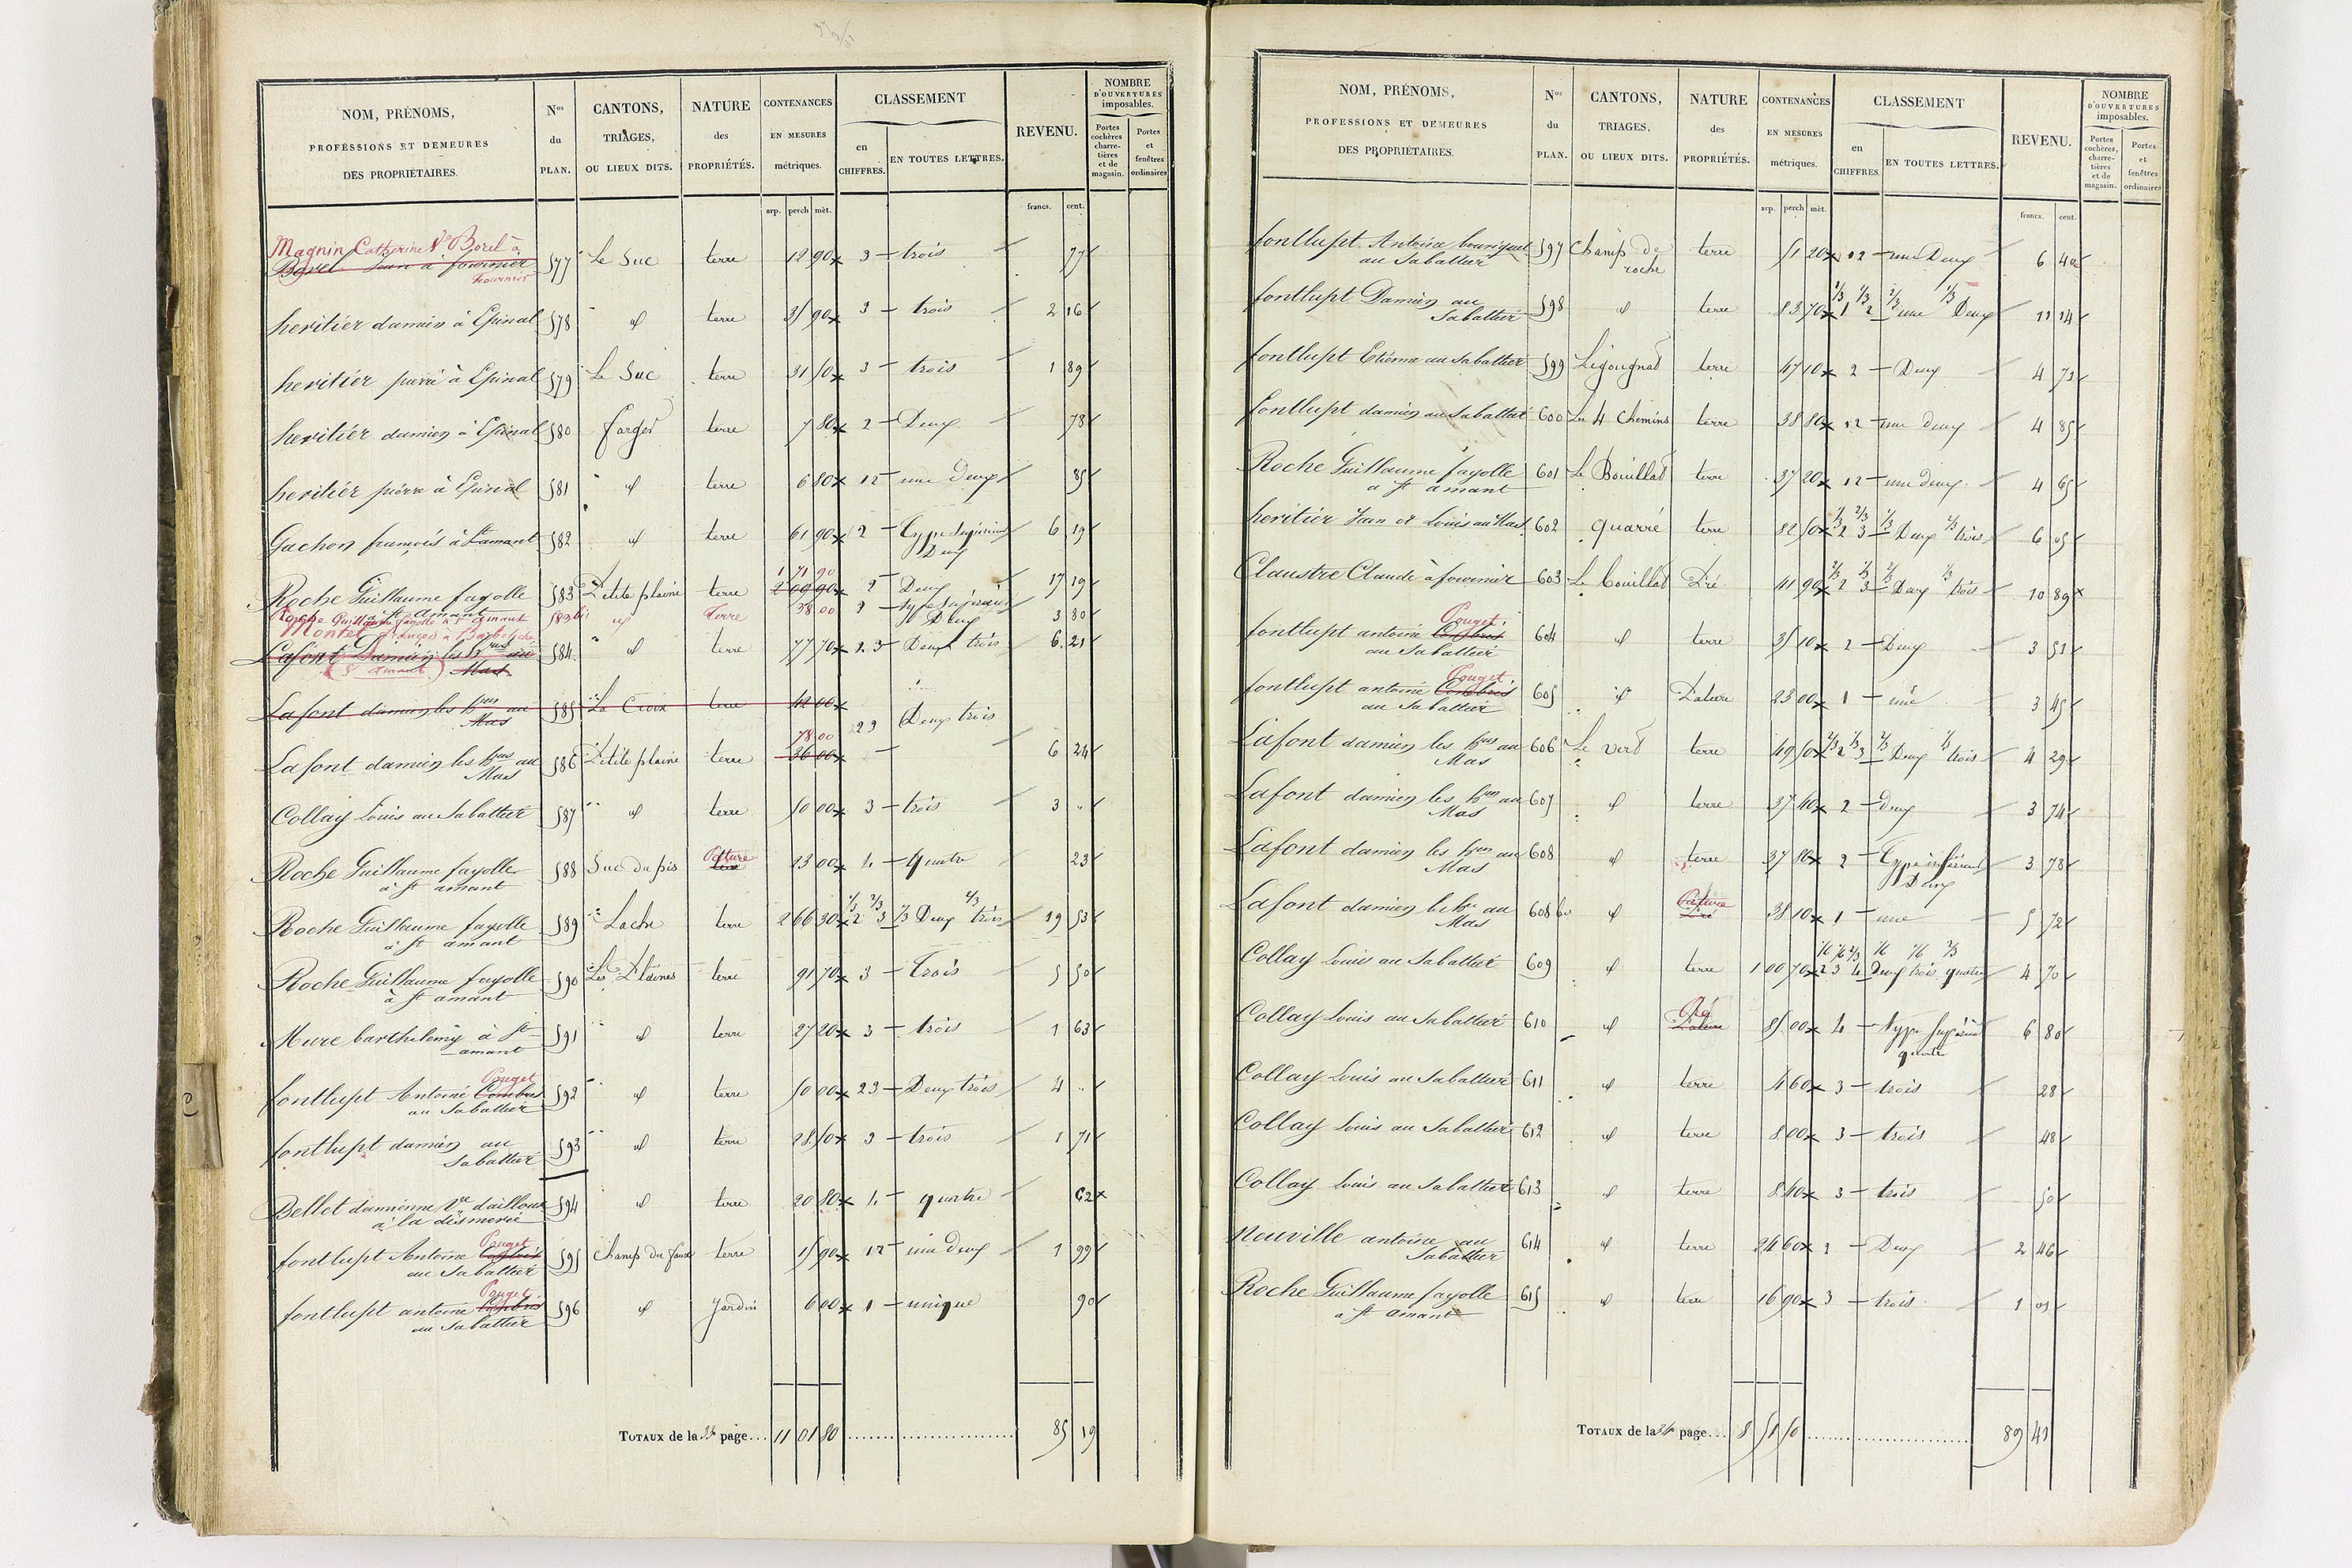 NOM, PRÉNOMS, PROFESSIONS ET DEMEURES DES PROPRIÉTAIRES. Nos du PLAN. CANTONS, TRIAGES, OU LIEUX DITS. NATURE des PROPRIÉTÉS. CONTENANCES EN MESURES métriques. CLASSEMENT en CHIFFRES. EN TOUTES LETTRES. REVENU. NOMBRE D'OUVERTURES imposables. Portes cochères charretières et de magasin. Portes et fenêtres ordinaires
arp. perch mèt. francs. cent.
Magnin Catherine Ve Borel à Fournier
Borel Jean à fournier 577 Le Suc terre 12 90 3 trois 77
heritiér damien à Epinal 578 id terre 35 90 3 trois 2 16
heritiér pierre à Epinal 579 Le Suc terre 31 50 3 trois 1 89
heritiér damien à Epinal 580 farges terre 7 80 2 Deux 78
heritiér pierre à Epinal 581 id terre 6 80 12 une Deux 85
Gachon francois à St amant 582 id terre 61 90 2 Type Supérieur Deux 6 19
1 71 90
Roche Guillaume fayolle à St amant 583 Petite plaine terre 2 09 90 2 Deux 17 19
Roche Guillaume fayolle à St amant 583 bis id Terre 38 00 2 type Supérieur Deux 3 80
Montet
Lafont Damien les hres au Mas 584 id terre 77 70 2.3 Deux trois 6 21
(St Amant)
Lafont damien les hres au Mas 585 La Croix terre 42 00
23 Deux trois
78 00
Lafont damien les hres au Mas 586 Petite plaine terre 36 00 6 24
Collay Louis au Sabattier 587 id terre 50 00 3 trois 3 "
Roche Guillaume fayolle à St amant 588 Suc du pis Pature terre 23 00 4 quatre 23
Roche Guillaume fayolle à St amant 589 Lache terre 2 66 30 1/3 2 2/3 3 1/3 Deux 2/3 trois 19 53
Roche Guillaume fayolle à St amant 590 Les Plaines terre 91 70 3 Trois 5 50
Mure barthelemy à St amant 591 id terre 27 20 3 trois 1 63
fontlupt Antoine Combris Pouget au Sabattier 592 id terre 50 00 23 Deux trois 4 "
fontlupt damien au Sabattier 593 id terre 28 50 3 trois 1 71
Bellet damienne Ve dailloux à la dismerie 594 id terre 20 80 4 quatre 62
fontlupt Antoine Combris Pouget au Sabattier 595 Champ du faux terre 15 90 12 une deux 1 99
fontlupt antoine Combris Pouget au Sabattier 596 id Jardin 6 00 1 unique 90
TOTAUX de la 33 page... 11 01 80 85 19
NOM, PRÉNOMS, PROFESSIONS ET DEMEURES DES PROPRIÉTAIRES. Nos du PLAN. CANTONS, TRIAGES, OU LIEUX DITS. NATURE des PROPRIÉTÉS. CONTENANCES EN MESURES métriques. CLASSEMENT en CHIFFRES. EN TOUTES LETTRES. REVENU. NOMBRE D'OUVERTURES imposables. Portes cochères, charretières et de magasin. Portes et fenêtres ordinaires
arp. perch mèt. francs. cent.
fontlupt Antoine au Sabattier 597 Champ de roche terre 51 20 12 une Deux 6 40
fontlupt Damien au Sabattier 598 id terre 83 70 2/3 1 1/3 2 2/3 une 1/3 Deux 11 14
fontlupt Etienne au Sabattier 599 Ligougnas terre 47 10 2 Deux 4 71
fontlupt damien au Sabattier 600 Les 4 Chemins terre 38 80 12 une deux 4 85
Roche Guillaume fayolle a St amant 601 Le Bouillat terre 37 20 12 une deux 4 65
heritiér Jean et Louis au Mas 602 quarré terre 82 50 1/3 2 2/3 3 1/3 Deux 2/3 trois 6 05
Claustre Claude à fournier 603 Le Bouillat Pré 41 90 2/3 2 1/3 3 2/3 Deux 1/3 trois 10 89
fontlupt antoine Combris Pouget au Sabattier 604 id terre 35 10 2 Deux 3 51
fontlupt antoine Combris Pouget au Sabattier 605 id Pature 23 00 1 une 3 45
Lafont damien les hres au Mas 606 Le verd terre 49 50 2/3 2 1/3 3 2/3 Deux 1/3 trois 4 29
Lafont damien les hres au Mas 607 id terre 37 40 2 deux 3 74
Lafont damien les hres au Mas 608 id terre 37 80 2 Type inférieur Deux 3 78
Lafont damien les hres au Mas 608 bis id Pature Pré 38 10 1 une 5 72
Collay Louis au Sabattier 609 id terre 1 00 70 1/6 2 1/6 3 2/3 4 1/6 Deux 1/6 trois 2/3 quatre 4 70
Collay Louis au Sabattier 610 id Pré Pature 85 00 4 type Supérieur quatre 6 80
Collay Louis au Sabattier 611 id terre 4 60 3 trois 28
Collay Louis au Sabattier 612 id terre 8 00 3 trois 48
Collay Louis au Sabattier 613 id terre 8 40 3 trois 50
Neuville antoine au Sabattier 614 id terre 24 60 2 Deux 2 46
Roche Guillaume fayolle à St amant 615 id terre 16 90 3 trois 1 01
TOTAUX de la 34 page... 8 51 50 89 41